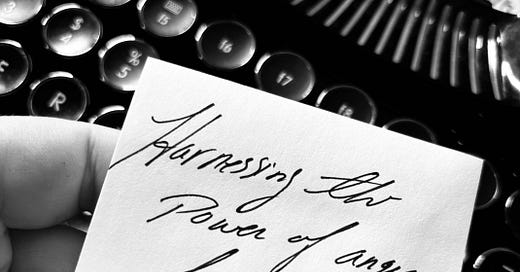 15
$
4
16
%
5
17
R
18
Harnessing the
Power of